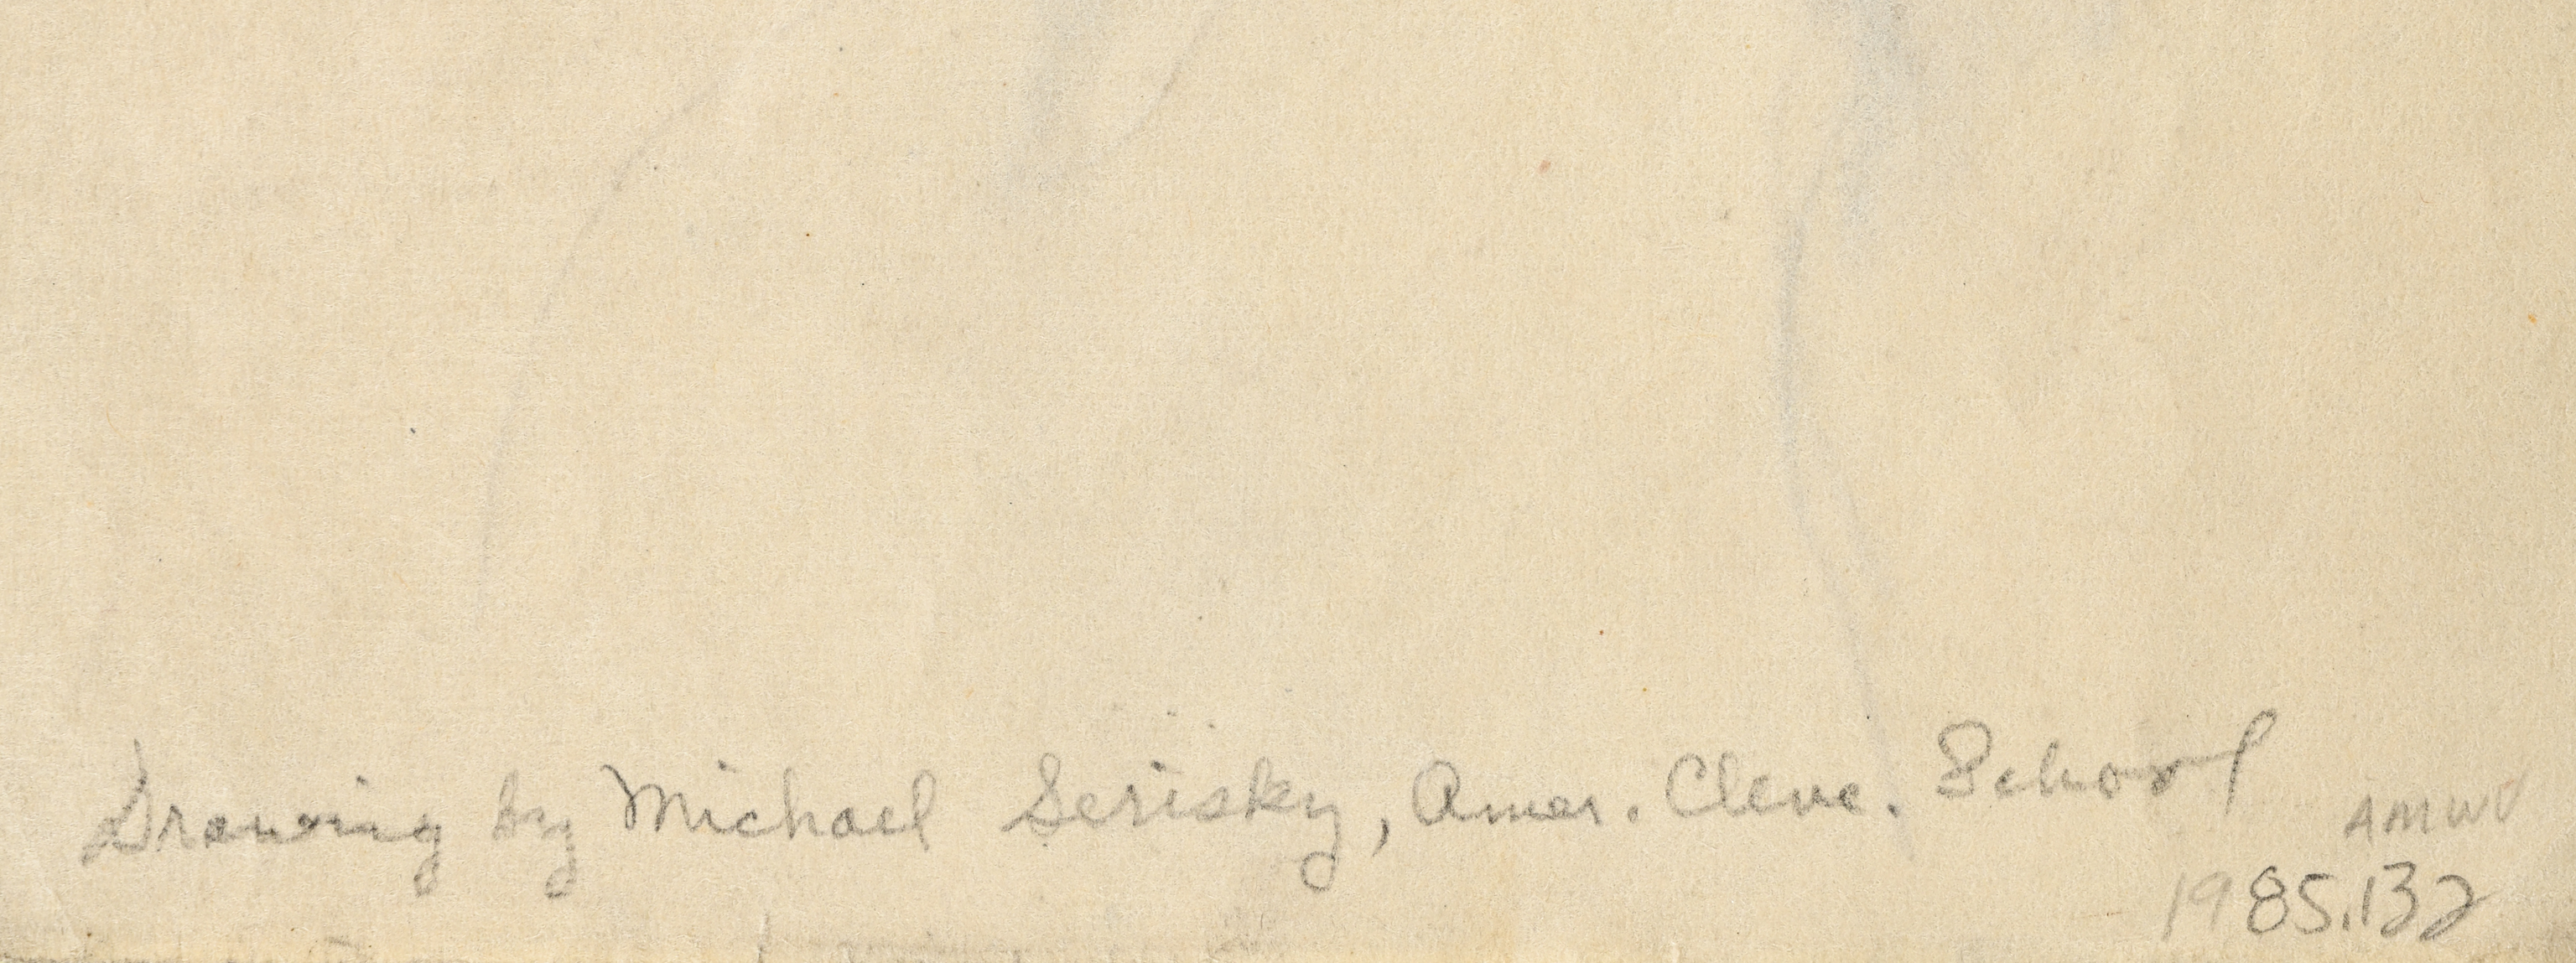 Drawing by Michael Serisky, Amer. Cleve. School
AMWD
1985.132